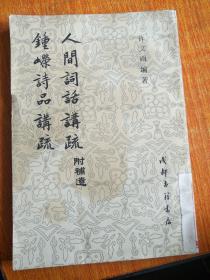 许文雨编著
人間詞話講疏 附補遺
鍾嶸詩品講疏
成都古籍书店